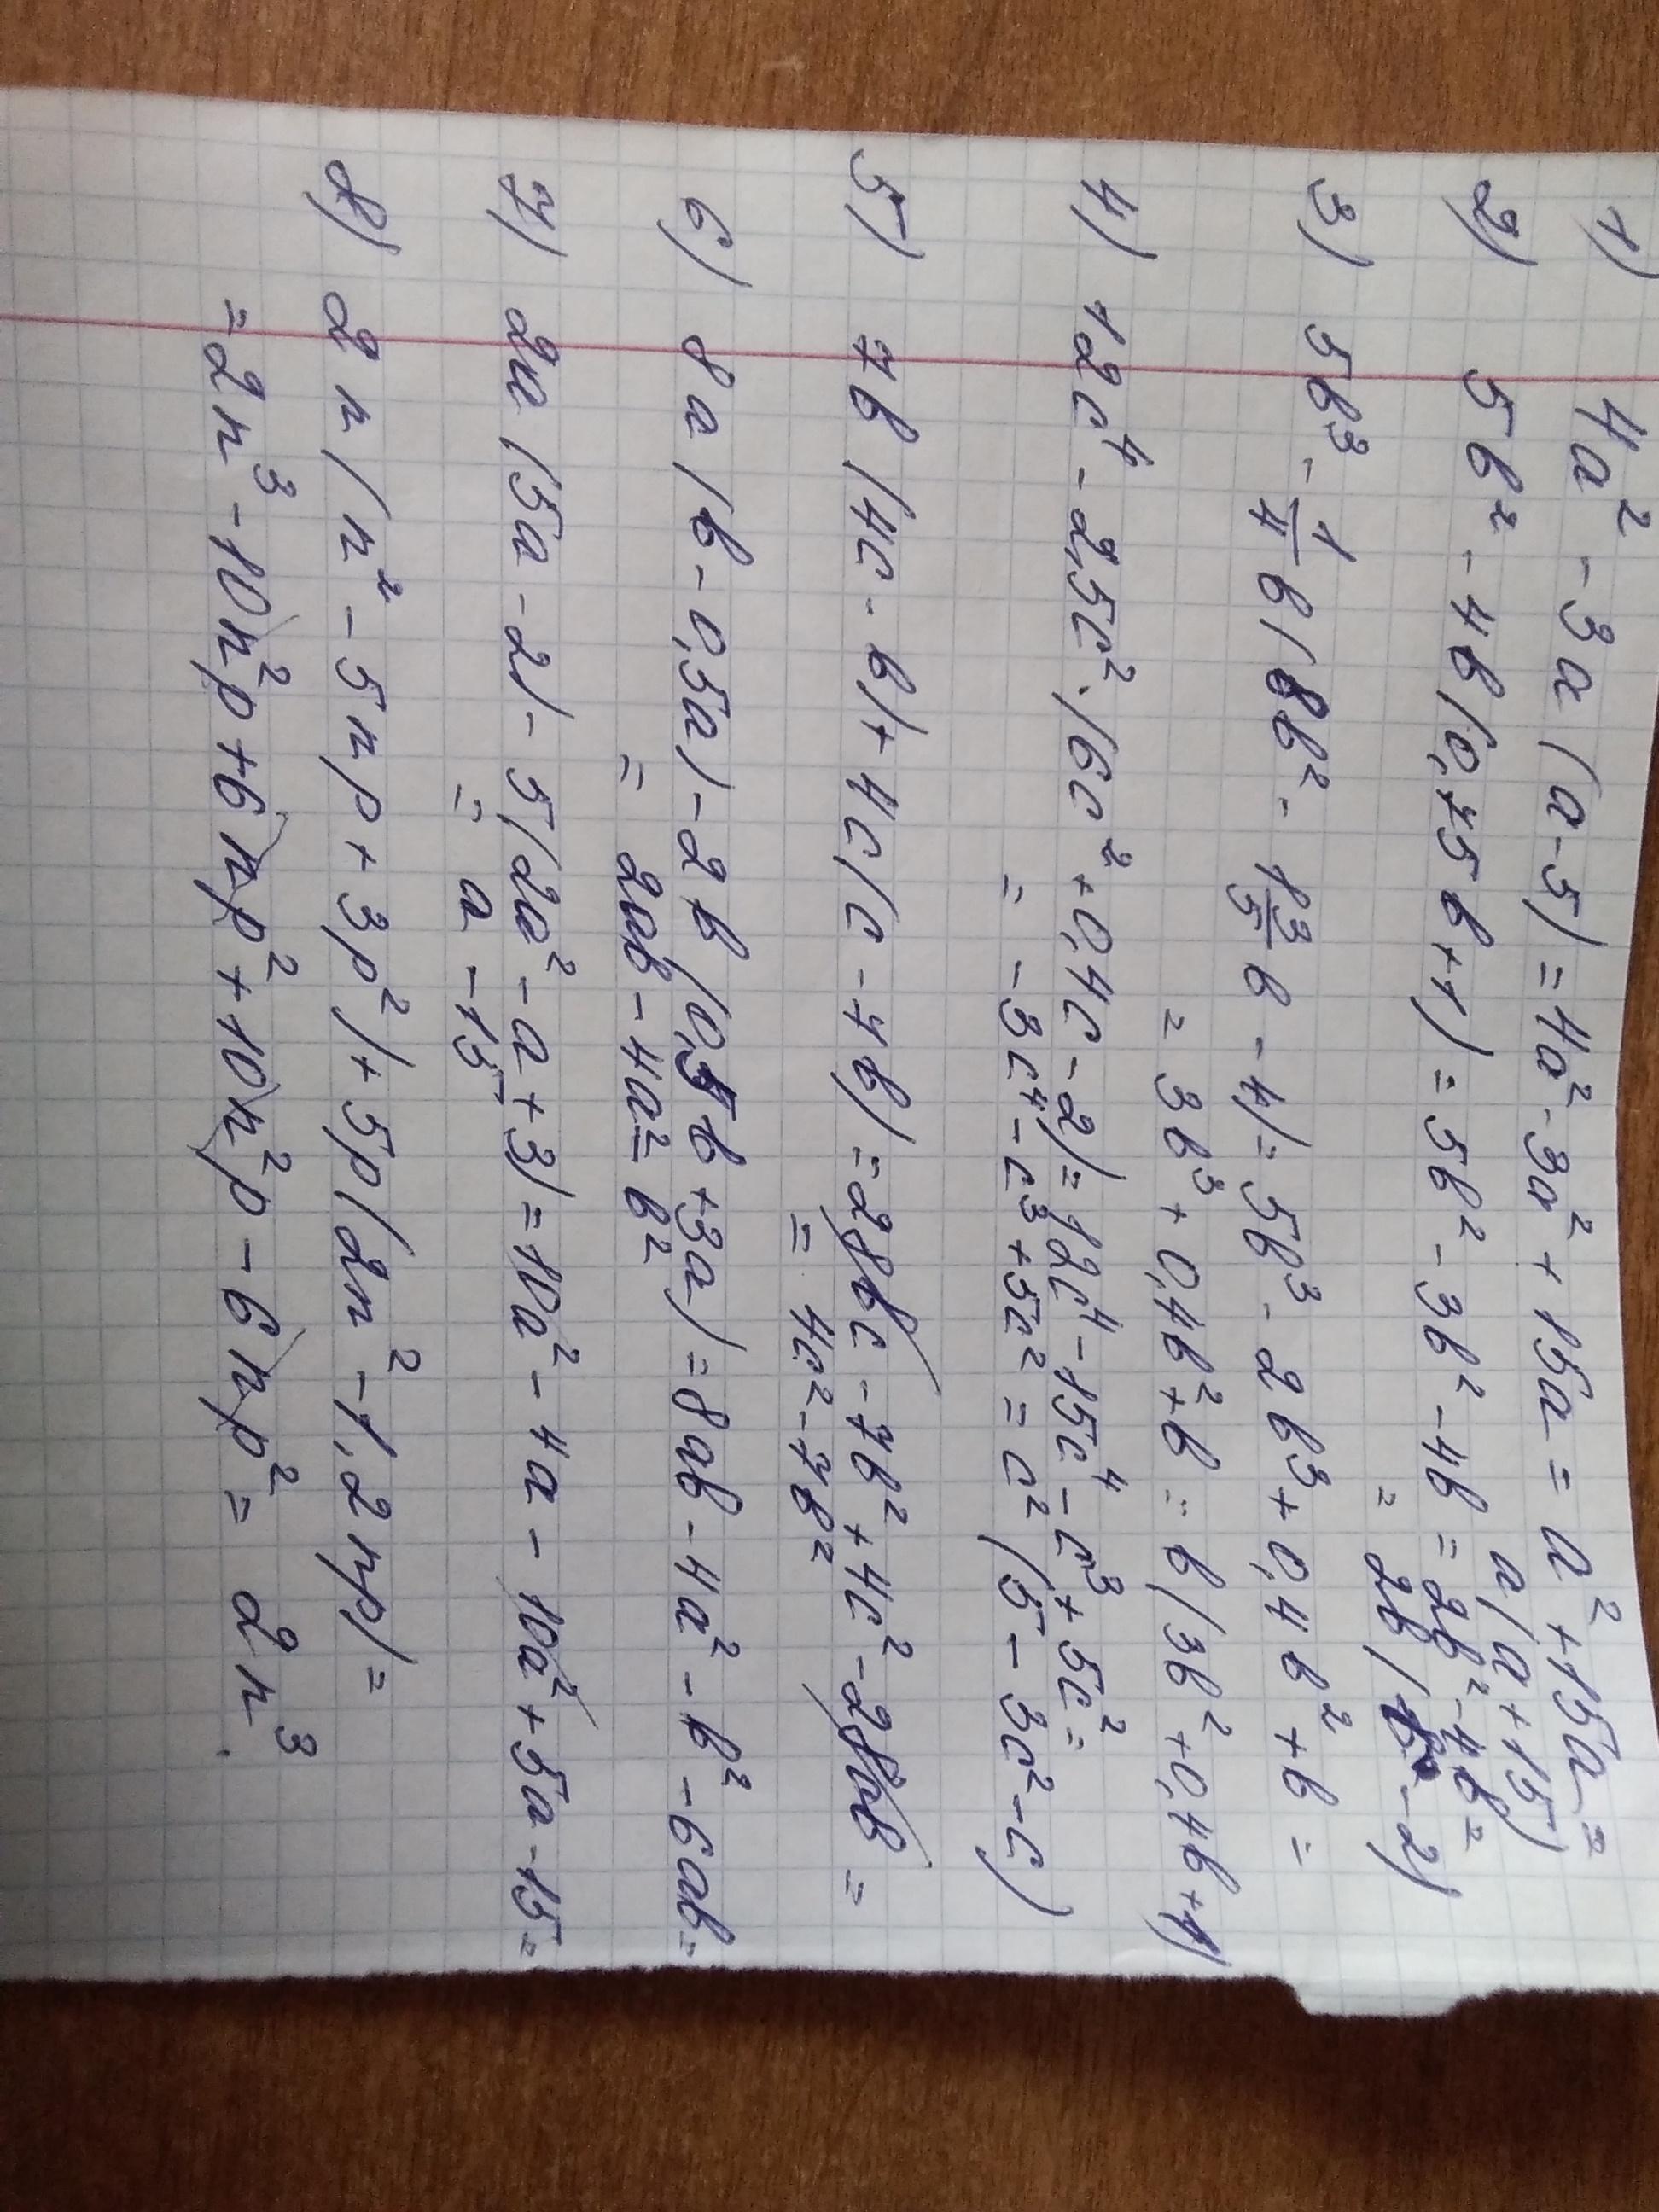 1) 4a² - 3a (a - 5) = 4a² - 3a² + 15a = a² + 15a =
a (a + 15)
2) 5в² - 4в (0,75в + 1) = 5в² - 3в² - 4в = 2в² - 4в =
= 2в (в - 2)
3) 5в³ - 1/4 в (8в² - 1 3/5 в - 4) = 5в³ - 2в³ + 0,4в² + в =
= 3в³ + 0,4в² + в = в (3в² + 0,4в + 1)
4) 12c⁴ - 2,5c² · (6c² + 0,4c - 2) = 12c⁴ - 15c⁴ - c³ + 5c² =
= -3c⁴ - c³ + 5c² = c² (5 - 3c² - c)
5) 7в (4c - в) + 4c (c - 7в) = 28вc - 7в² + 4c² - 28cв =
= 4c² - 7в²
6) 8a (в - 0,5a) - 2в (0,5в + 3a) = 8aв - 4a² - в² - 6aв =
= 2aв - 4a² - в²
7) 2a (5a - 2) - 5 (2a² - a + 3) = 10a² - 4a - 10a² + 5a - 15 =
= a - 15
8) 2n (n² - 5np + 3p²) + 5p (2n² - 1,2np) =
= 2n³ - 10n²p + 6np² + 10n²p - 6np² = 2n³.